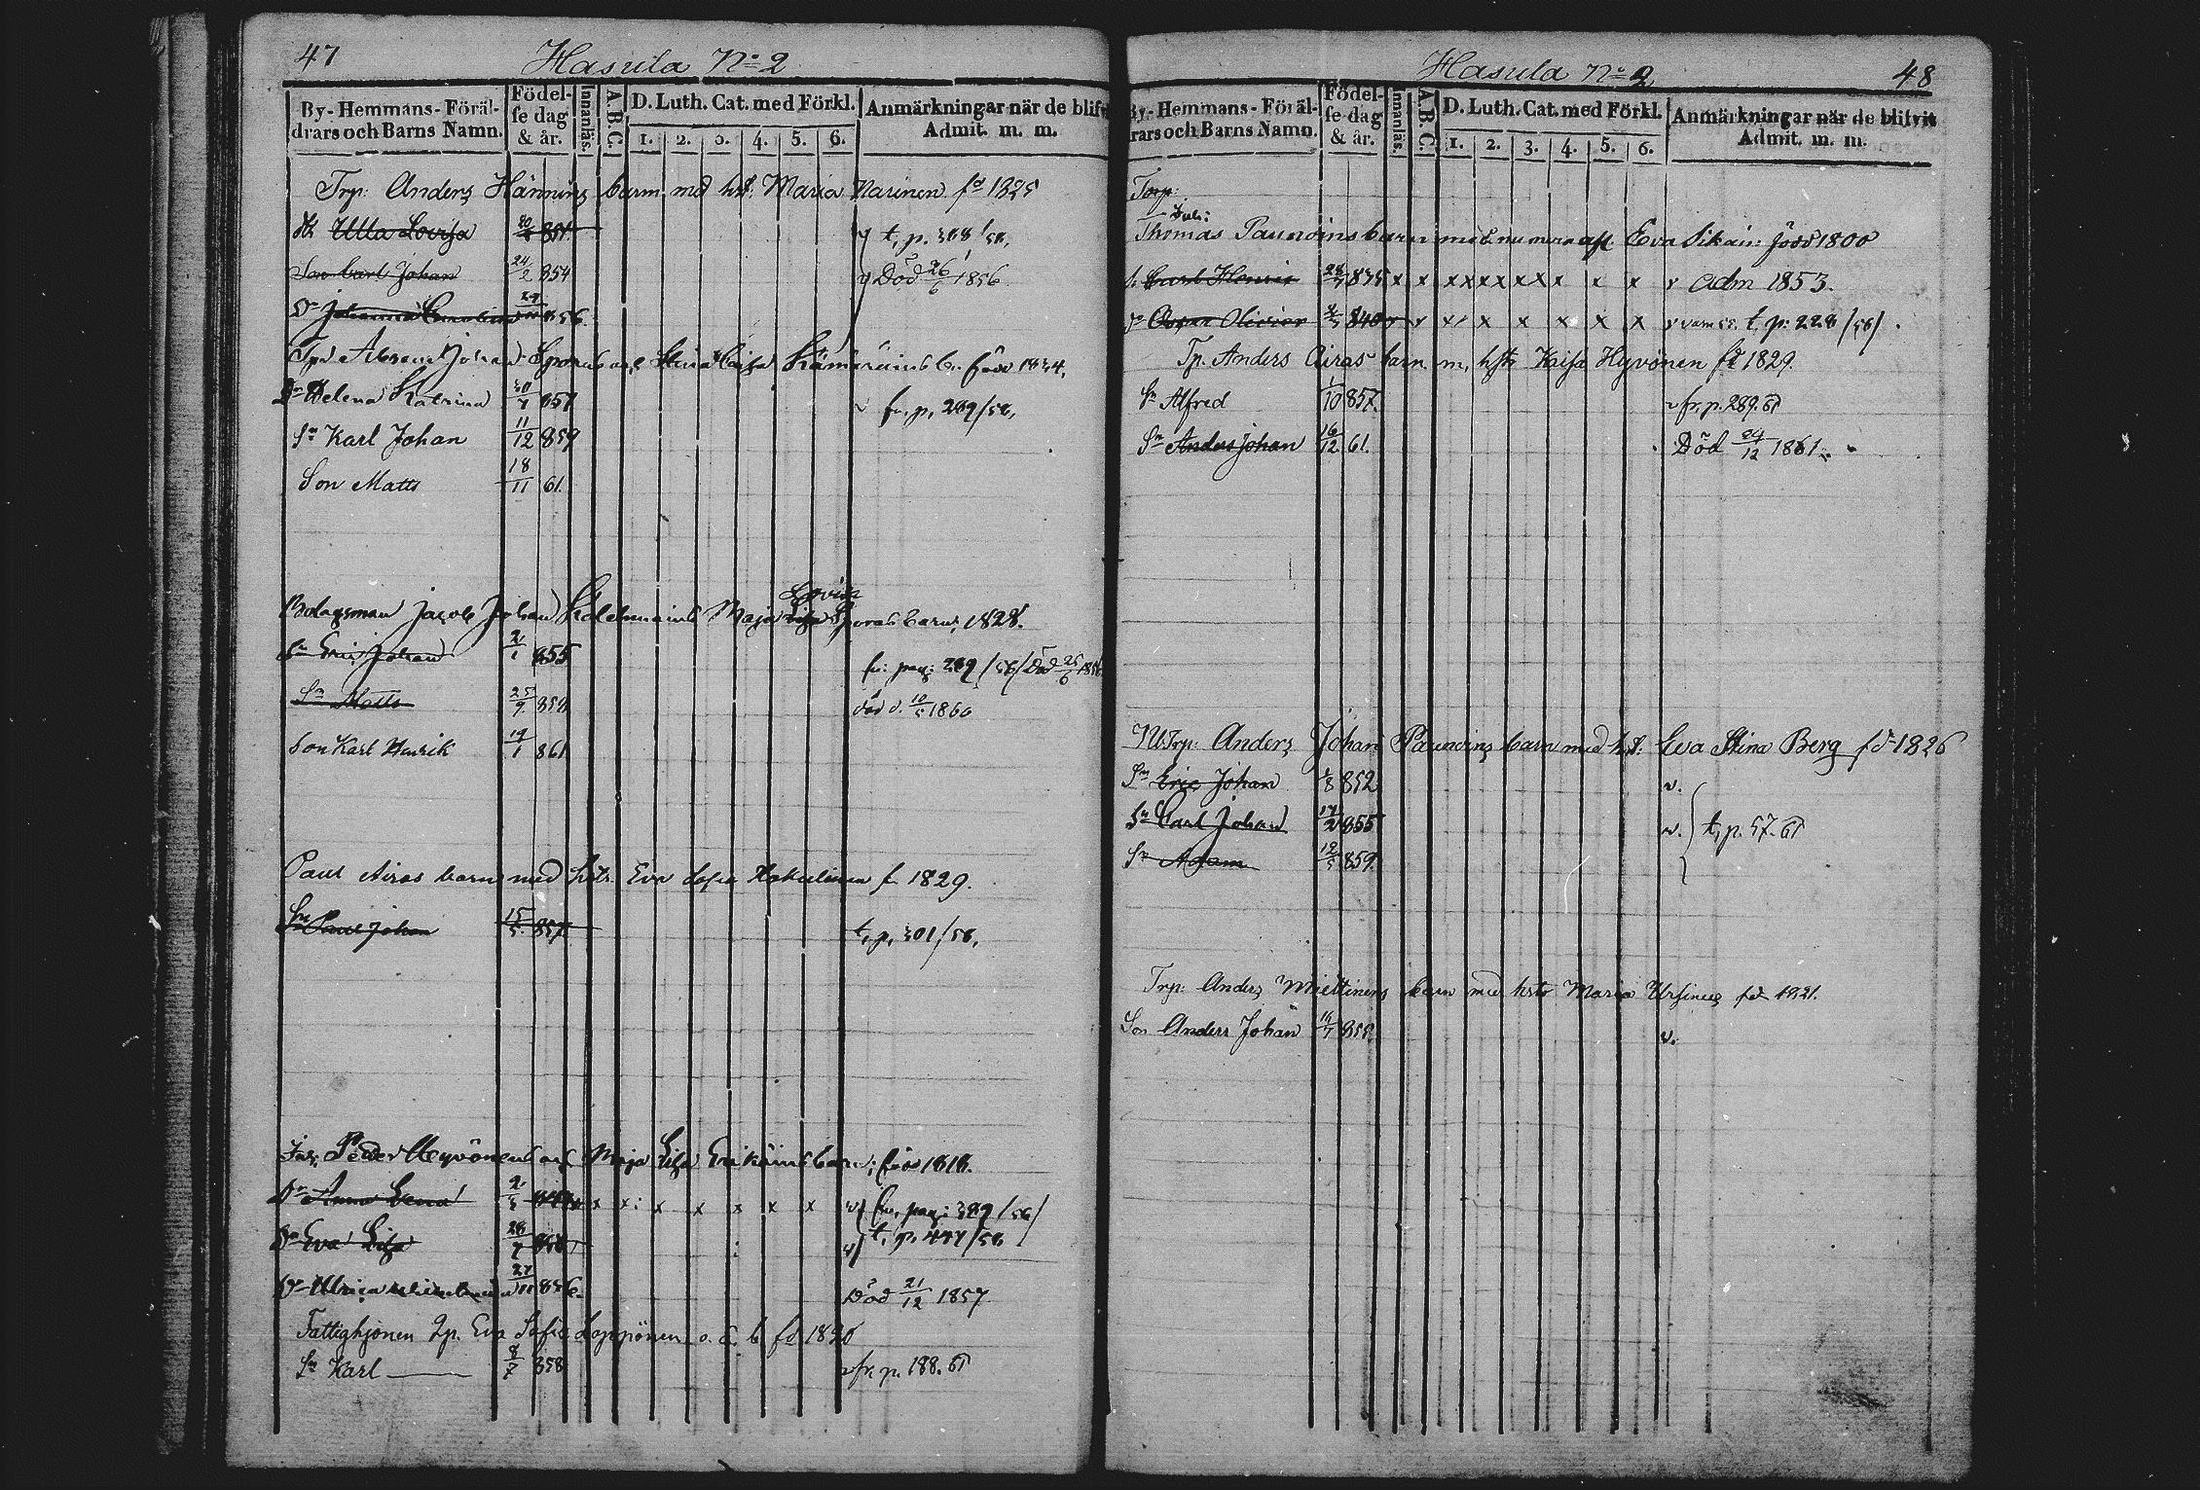 47
Hasula No 2
By- Hemmans- Föräl-
drars och Barns Namn.
Födel-
se dag
& år.
Innanläs.
A.B.C.
D. Luth. Cat. med Förkl.
1. 2. 3. 4. 5. 6.
Anmärkningar när de blifv
Admit. m. m.
Trp: Anders Hännins barn med hst: Maria Narinen fd 1825
Ulla Lovisa 851 t, p. 368/56,
Son Carl Johan 24/2 854 Död 26/6 1856
Dr Johanna Carolina 856
Johan Sporas och Stina Caisa b. född 1834,
Dr Helena Katrina 30/7 857 fr. p. 289/56,
Sn Karl Johan 11/12 859
Son Matts 18/11 61.
Lovisa
Bolagsman Jacob Johan Maja Lisa Sporas barn, 1828.
Sn Eric Johan 21/1 855 fr: pag: 289/56/ Död 25/6 1856
Sn Matts 25/9 858 död d. 10/5 1860
Son Karl Henrik 19/1 861
Paul Airas barn med hstr. Eva Sofia f 1829.
Sn Paul Johan 15/5 857 t, p, 301/56,
Peder Heyvönens och Maja Lisa barn; född 1818.
Dr Anna Lena x x: x x x x x fr, pag: 389/56/
Dr Eva Lisa 28/7 850 t, p. 477/56
Dr Ulrica 27/10 856 Död 21/12 1857
Fattighjonen Qp. Eva Sofia Loppönen o. ä. b fd 1830
Sn Karl 8/7 858 v fr. p. 188. 61
Hasula No 2
48
By- Hemmans- Föräl-
drars och Barns Namn.
Födel-
se dag
& år.
Innanläs.
A.B.C.
D. Luth. Cat. med Förkl.
1. 2. 3. 4. 5. 6.
Anmärkningar när de blifvit
Admit. m. m.
Torp:
Inh:
Thomas Paunoins barn med numera afl. Eva Sikain: född 1800
Carl Henric x x xx xx xx x x x v adm 1853.
Sn Oscar Olivier 840 x x x x x x t, p: 228/56/.
Tp. Anders Airas barn m, hstr Kaisa Hyvönen fd 1829.
Sn Alfred 1/10 857. v fr. p. 289. 61
Sn Anders Johan 16/12 61. Död 24/12 1861.
Trp: Anders Johan Paunoins barn med hst: Eva Stina Berg fd 1826
Sn Eric Johan 852 v.
Sn Carl Johan 17/2 855 v. t, p. 57. 61
Sn Adam 12/5 859.
Trp: Anders Miettinens barn med hstr Maria Ursinus fd 1821.
Son Anders Johan 858 v.